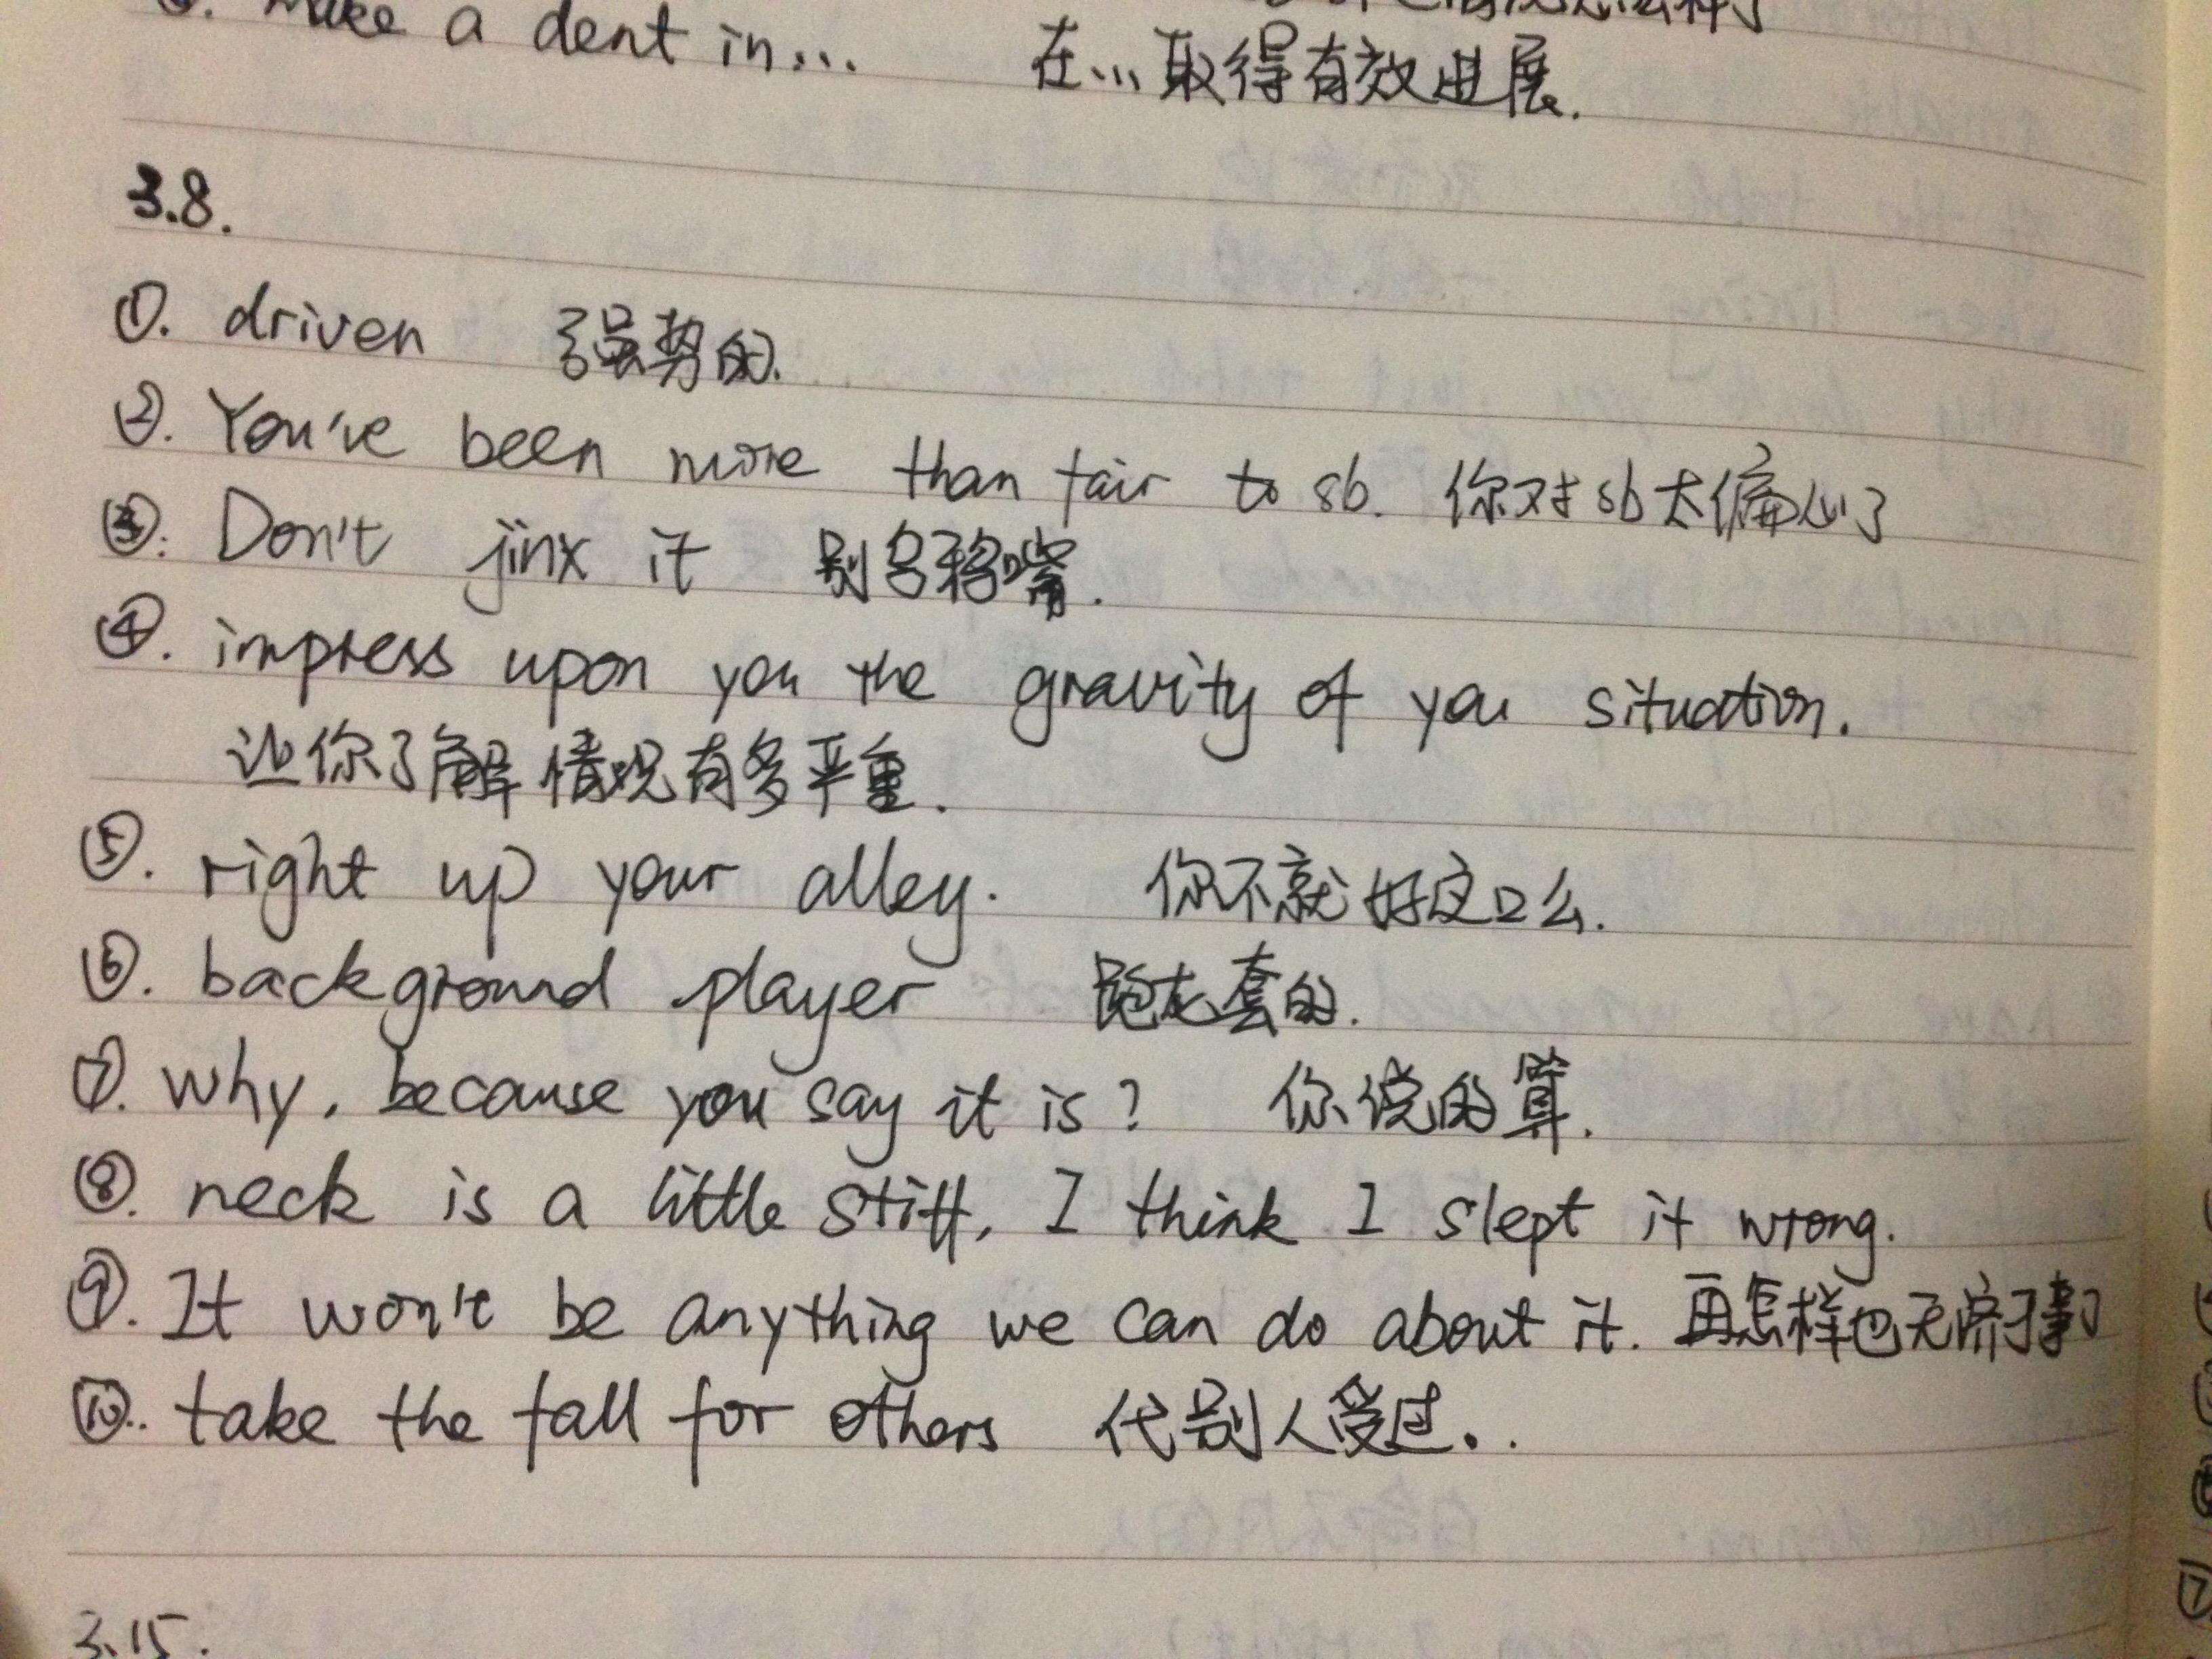 make a dent in... 在...取得有效进展.
3.8.
①. driven 强势的.
②. You've been more than fair to sb. 你对sb太偏心了
③. Don't jinx it 别乌鸦嘴.
④. impress upon you the gravity of you situation.
让你了解情况有多严重.
⑤. right up your alley. 你不就好这口么.
⑥. background player 跑龙套的.
⑦. why, because you say it is? 你说的算.
⑧. neck is a little stiff, I think I slept it wrong.
⑨. It won't be anything we can do about it. 再怎样也无济于事了
⑩. take the fall for others 代别人受过..
3.15.
⑦